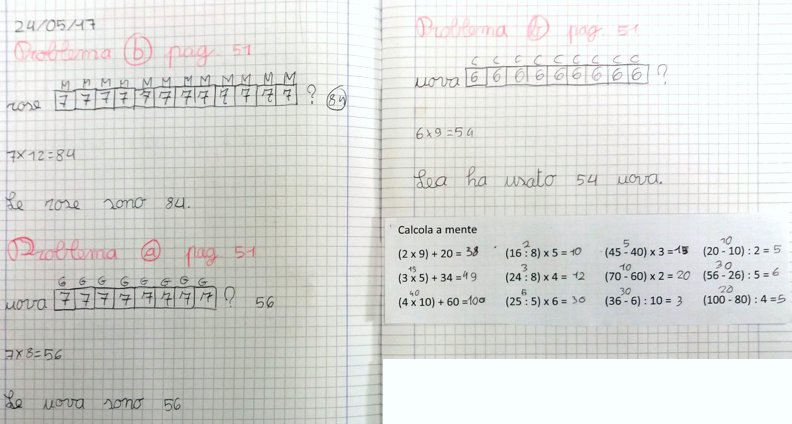 24/05/17
Problema b pag 51
M M M M M M M M M M M M
rose 7 7 7 7 7 7 7 7 7 7 7 7 ? 84
7x12=84
Le rose sono 84.
Problema a pag 51
G G G G G G G G
uova 7 7 7 7 7 7 7 7 ? 56
7x8=56
Le uova sono 56
Problema pag 51
C C C C C C C C C
uova 6 6 6 6 6 6 6 6 6 ?
6x9=54
Lea ha usato 54 uova.
Calcola a mente
2 5 10
(2 x 9) + 20 = 38 (16 : 8) x 5 = 10 (45 - 40) x 3 = 15 (20 - 10) : 2 = 5
15 3 10 30
(3 x 5) + 34 = 49 (24 : 8) x 4 = 12 (70 - 60) x 2 = 20 (56 - 26) : 5 = 6
40 5 30 20
(4 x 10) + 60 = 100 (25 : 5) x 6 = 30 (36 - 6) : 10 = 3 (100 - 80) : 4 = 5